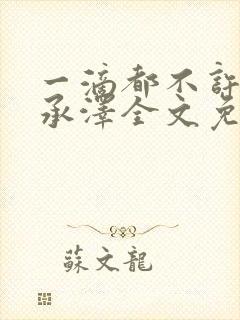 一滴都不許
承澤全文免
蘇文龍